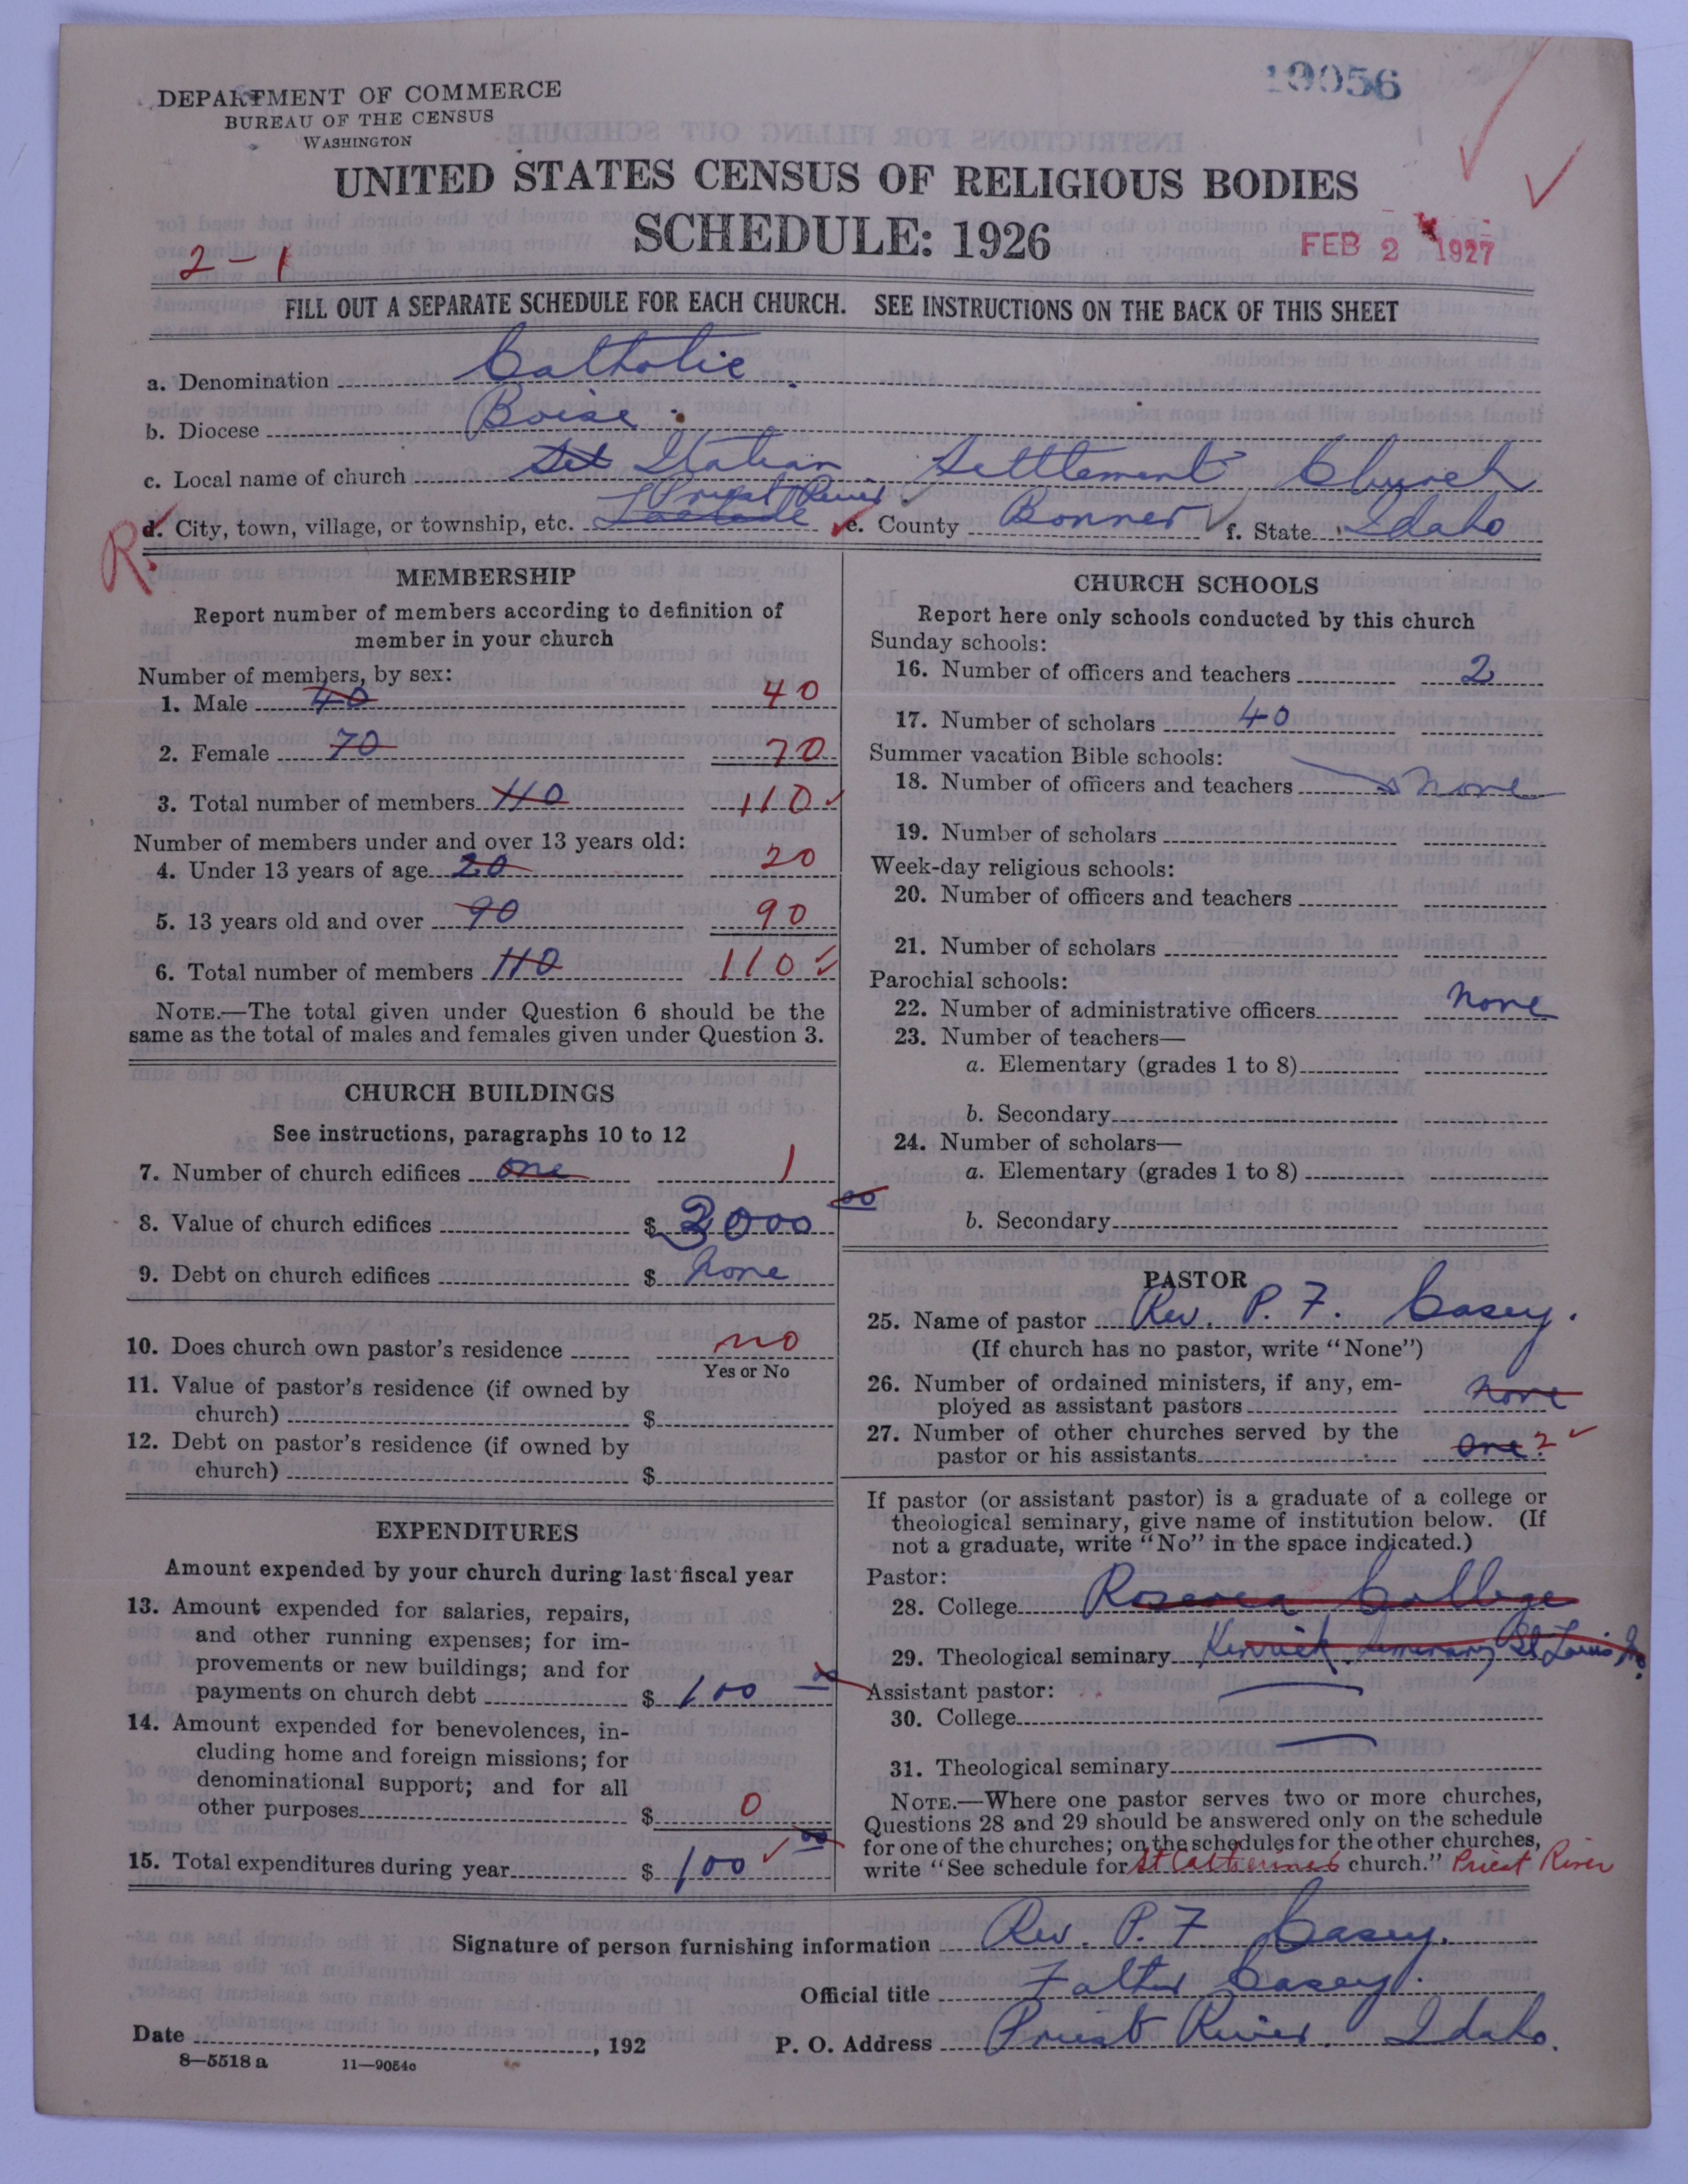 19056
DEPARTMENT OF COMMERCE
BUREAU OF THE CENSUS
WASHINGTON
UNITED STATES CENSUS OF RELIGIOUS BODIES
SCHEDULE: 1926
2-1
FEB 2 1927
FILL OUT A SEPARATE SCHEDULE FOR EACH CHURCH. SEE INSTRUCTIONS ON THE BACK OF THIS SHEET
a. Denomination Catholic
b. Diocese Boise
c. Local name of church Set Italian Settlement Church
Priest River
d. City, town, village, or township, etc. Laclede e. County Bonner f. State Idaho
R.
MEMBERSHIP
Report number of members according to definition of
member in your church
Number of members, by sex:
1. Male 40 40
2. Female 70 70
3. Total number of members 110 110
Number of members under and over 13 years old:
4. Under 13 years of age 20 20
5. 13 years old and over 90 90
6. Total number of members 110 110
NOTE.—The total given under Question 6 should be the
same as the total of males and females given under Question 3.
CHURCH BUILDINGS
See instructions, paragraphs 10 to 12
7. Number of church edifices one 1
8. Value of church edifices $ 3000 00
9. Debt on church edifices $ none
10. Does church own pastor's residence no
Yes or No
11. Value of pastor's residence (if owned by
church) $
12. Debt on pastor's residence (if owned by
church) $
EXPENDITURES
Amount expended by your church during last fiscal year
13. Amount expended for salaries, repairs,
and other running expenses; for im-
provements or new buildings; and for
payments on church debt $ 100 00
14. Amount expended for benevolences, in-
cluding home and foreign missions; for
denominational support; and for all
other purposes $ 0
15. Total expenditures during year $ 100 00
CHURCH SCHOOLS
Report here only schools conducted by this church
Sunday schools:
16. Number of officers and teachers 2
17. Number of scholars 40
Summer vacation Bible schools:
18. Number of officers and teachers none
19. Number of scholars
Week-day religious schools:
20. Number of officers and teachers
21. Number of scholars
Parochial schools:
22. Number of administrative officers none
23. Number of teachers—
a. Elementary (grades 1 to 8)
b. Secondary
24. Number of scholars—
a. Elementary (grades 1 to 8)
b. Secondary
PASTOR
25. Name of pastor Rev. P. F. Casey.
(If church has no pastor, write "None")
26. Number of ordained ministers, if any, em-
ployed as assistant pastors none
27. Number of other churches served by the
pastor or his assistants one 2
If pastor (or assistant pastor) is a graduate of a college or
theological seminary, give name of institution below. (If
not a graduate, write "No" in the space indicated.)
Pastor:
28. College College
29. Theological seminary Kenrick Seminary St Louis Mo.
Assistant pastor:
30. College
31. Theological seminary
NOTE.—Where one pastor serves two or more churches,
Questions 28 and 29 should be answered only on the schedule
for one of the churches; on the schedules for the other churches,
write "See schedule for St Catherines church." Priest River
Signature of person furnishing information Rev. P. F Casey.
Official title Father Casey.
Date , 192 P. O. Address Priest River. Idaho.
8—5518 a 11—9054c